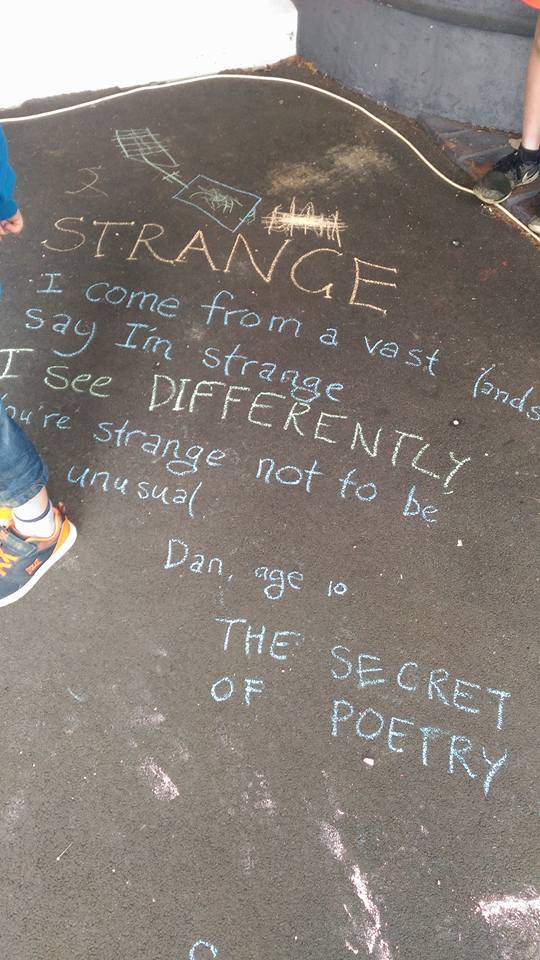 STRANGE
I come from a vast lands
say I'm strange
I see DIFFERENTLY
You're strange not to be
unusual
Dan, age 10
THE SECRET
OF POETRY